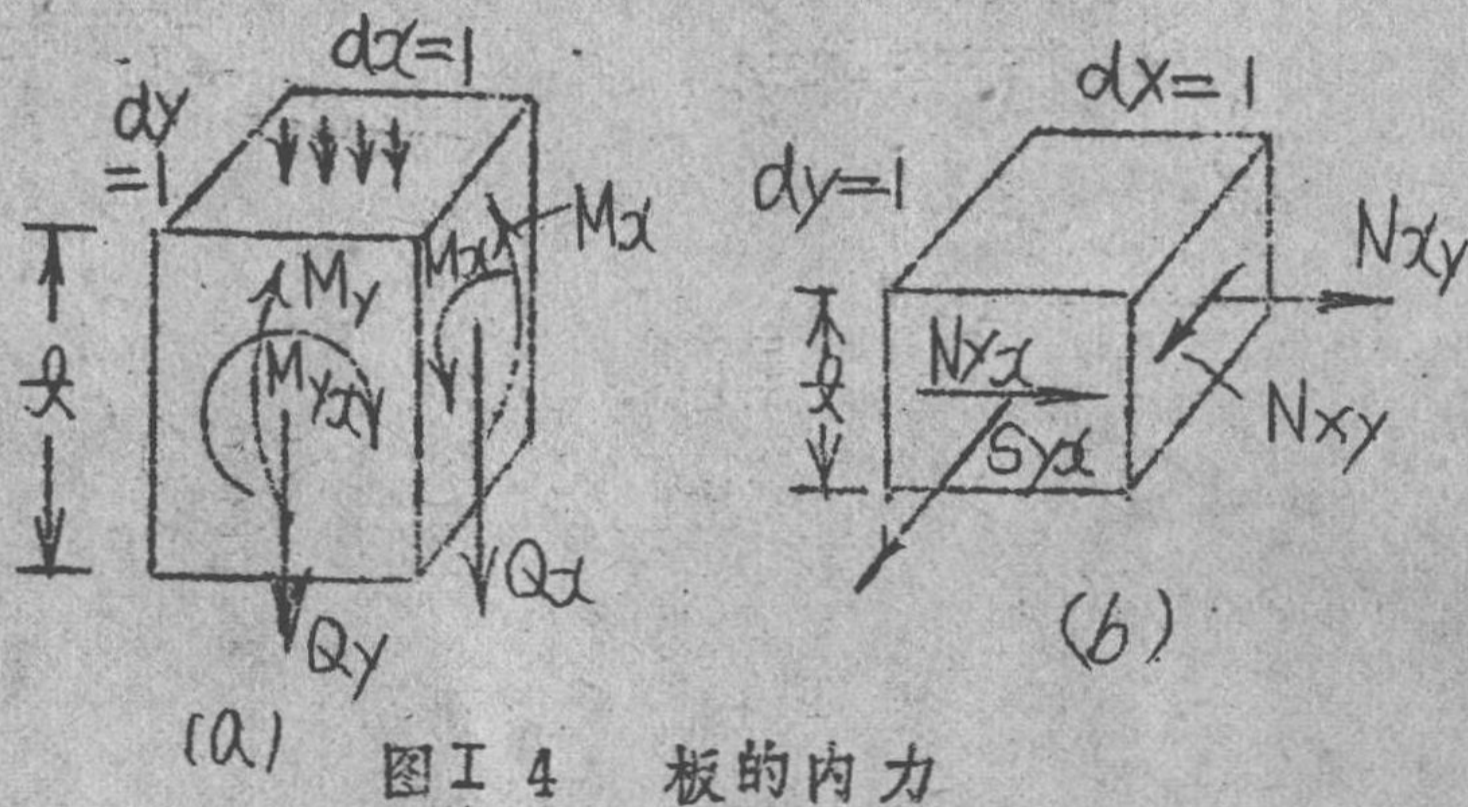 dx=1
dy
=1
Mx
My
Mxy
Myxy
Qx
Qy
(a)
dx=1
dy=1
Nxy
Nyx
Syx
Nxy
(b)
图Ⅰ4 板的内力